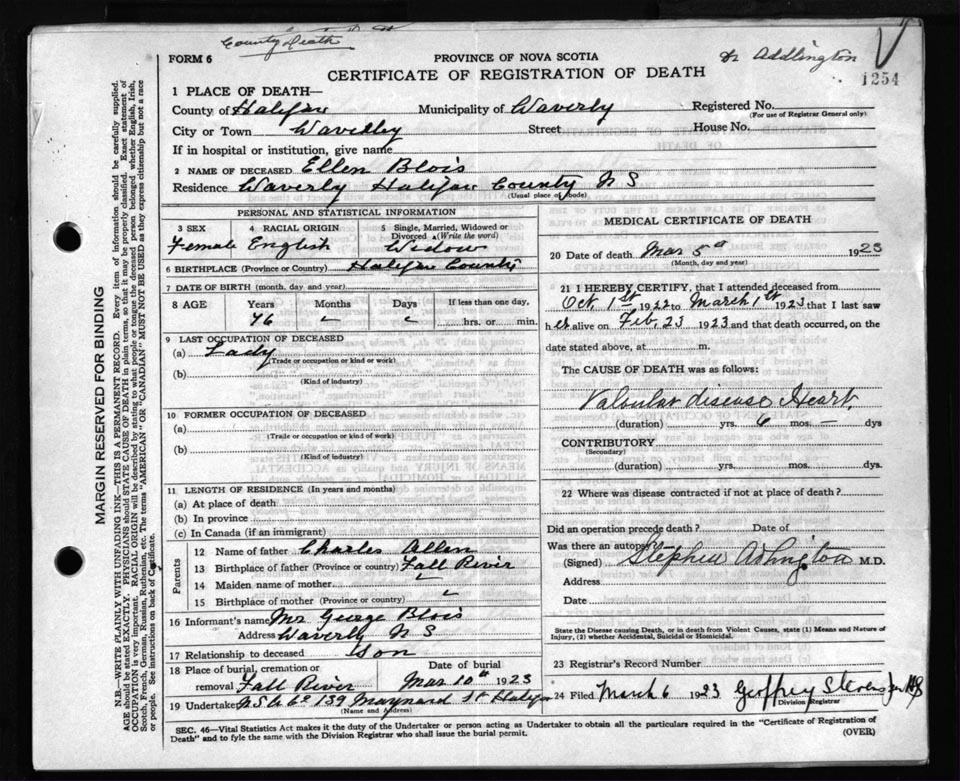 County Death
FORM 6
PROVINCE OF NOVA SCOTIA
Dr Addlington
CERTIFICATE OF REGISTRATION OF DEATH
1254
1 PLACE OF DEATH—
County of Halifax Municipality of Waverly Registered No.
(For use of Registrar General only)
City or Town Waverley Street House No.
If in hospital or institution, give name
2 NAME OF DECEASED Ellen Blois
Residence Waverly Halifax County N S
(Usual place of abode)
PERSONAL AND STATISTICAL INFORMATION
3 SEX 4 RACIAL ORIGIN 5 Single, Married, Widowed or Divorced (Write the word)
Female English Widow
6 BIRTHPLACE (Province or Country) Halifax County
7 DATE OF BIRTH (month, day and year)
8 AGE Years Months Days If less than one day,
76 hrs. or min.
9 LAST OCCUPATION OF DECEASED
(a) Lady
(Trade or occupation or kind of work)
(b)
(Kind of industry)
10 FORMER OCCUPATION OF DECEASED
(a)
(Trade or occupation or kind of work)
(b)
(Kind of industry)
11 LENGTH OF RESIDENCE (In years and months)
(a) At place of death
(b) In province
(c) In Canada (if an immigrant)
Parents
12 Name of father Charles Allen
13 Birthplace of father (Province or country) Fall River
14 Maiden name of mother
15 Birthplace of mother (Province or country)
16 Informant's name Mr George Blois
Address Waverly N S
17 Relationship to deceased Son
18 Place of burial, cremation or removal Fall River
Date of burial Mar 10th 1923
19 Undertaker N.S.U. Co 139 Maynard St Halifax
(Name and Address)
MEDICAL CERTIFICATE OF DEATH
20 Date of death Mar 5th 1923
(Month, day and year)
21 I HEREBY CERTIFY, that I attended deceased from
Oct 1st 1922 to March 1st 1923 that I last saw
her alive on Feb. 23 1923 and that death occurred, on the
date stated above, at m.
The CAUSE OF DEATH was as follows:
Valvular disease Heart.
(duration) yrs. 6 mos. — dys
CONTRIBUTORY
(Secondary)
(duration) yrs. mos. dys.
22 Where was disease contracted if not at place of death?
Did an operation precede death? Date of
Was there an autopsy?
(Signed) Stephen Adlington M.D.
Address
Date
State the Disease causing Death, or in death from Violent Causes, state (1) Means and Nature of
Injury, (2) whether Accidental, Suicidal or Homicidal.
23 Registrar's Record Number
24 Filed March 6 1923 Geffrey Stevens
Division Registrar
SEC. 46—Vital Statistics Act makes it the duty of the Undertaker or person acting as Undertaker to obtain all the particulars required in the "Certificate of Registration of
Death" and to fyle the same with the Division Registrar who shall issue the burial permit.
(OVER)
MARGIN RESERVED FOR BINDING
N.B.—WRITE PLAINLY WITH UNFADING INK—THIS IS A PERMANENT RECORD. Every item of information should be carefully supplied.
AGE should be stated EXACTLY. PHYSICIANS should STATE CAUSE OF DEATH in plain terms, so that it may be properly classified. Exact statement of
OCCUPATION is very important. RACIAL ORIGIN will be described by stating to what people or tongue the deceased person belonged whether English, Irish,
Scotch, French, German, Russian, Ruthenian, etc. The terms "AMERICAN" OR "CANADIAN" MUST NOT BE USED as they express citizenship but not a race
or people. See instructions on back of Certificate.